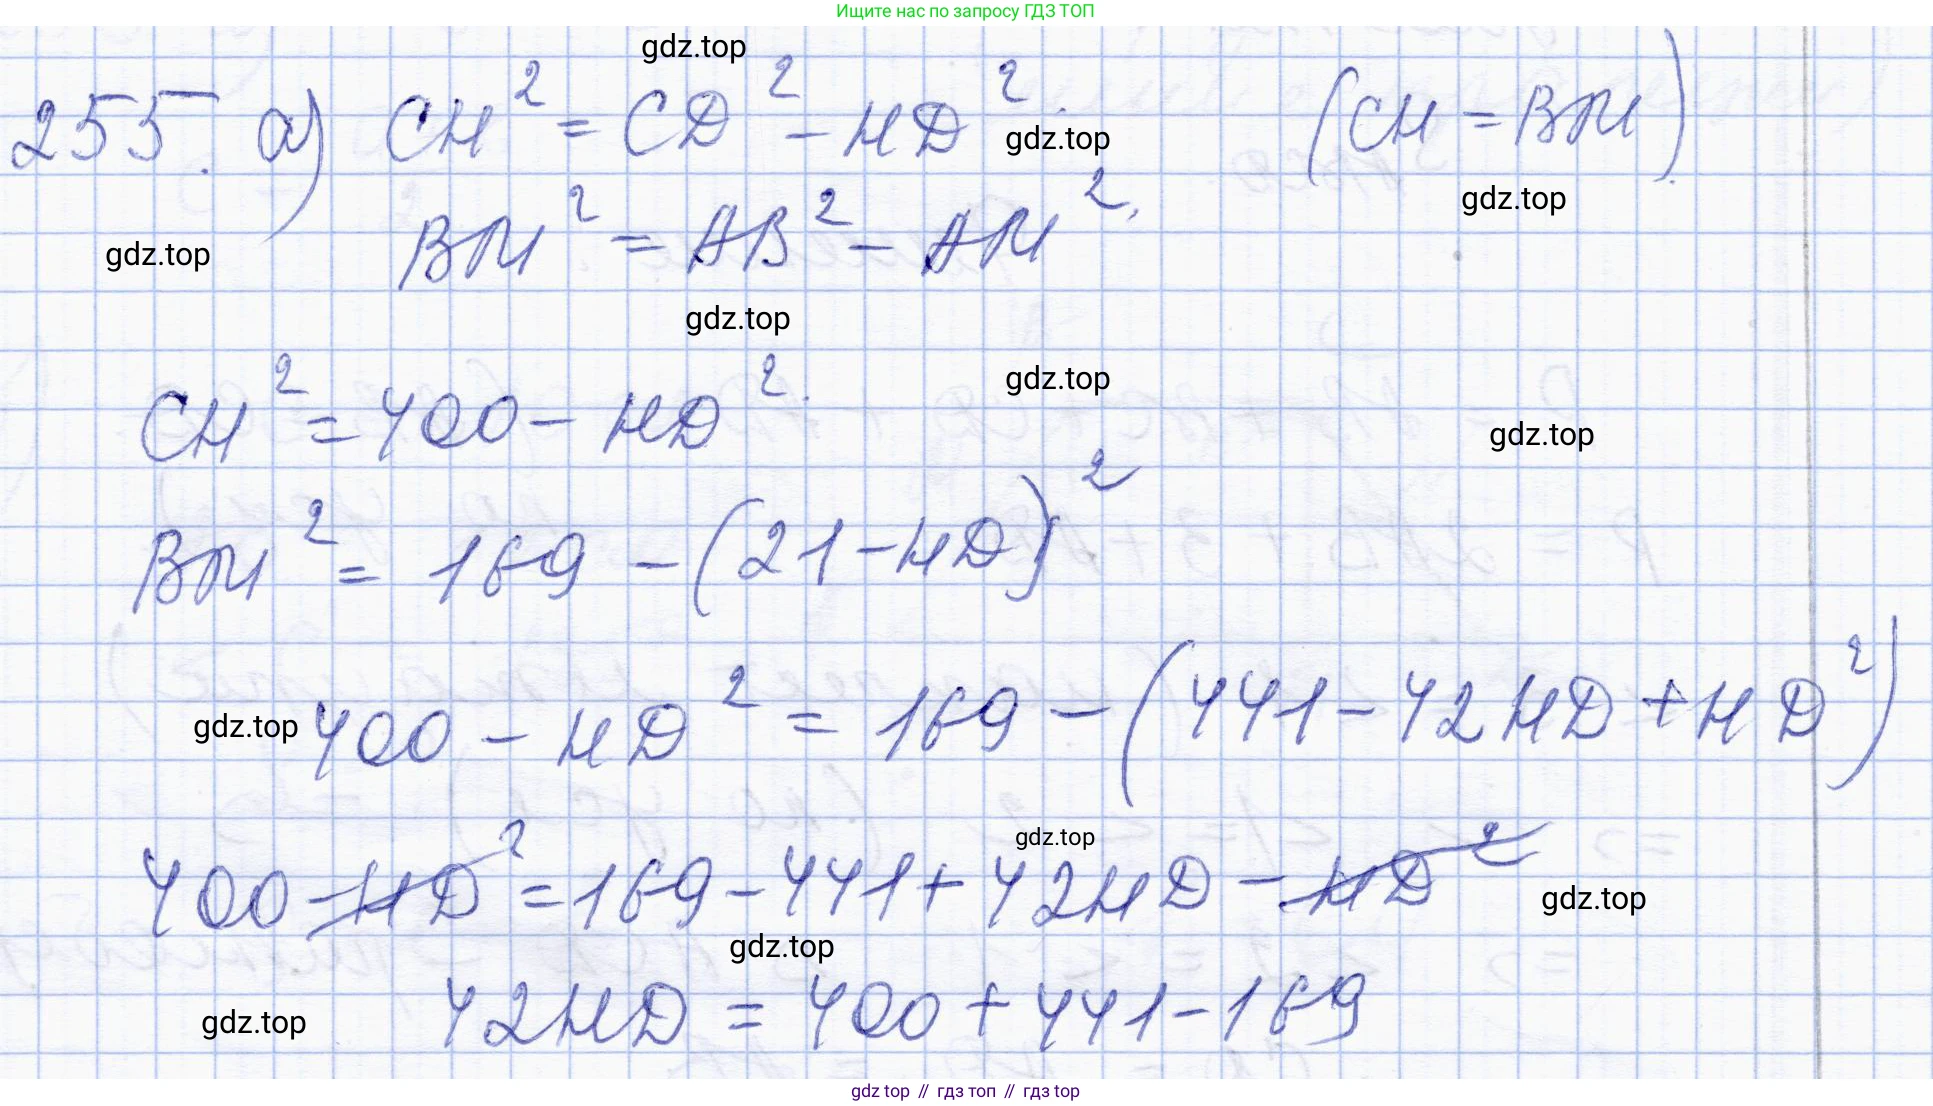 Ищите нас по запросу ГДЗ ТОП
gdz.top
255. а) CH² = CD² - HD². (CH = BM)
gdz.top
gdz.top
BM² = AB² - AM²,
gdz.top
gdz.top
gdz.top
CH² = 400 - HD².
gdz.top
BM² = 169 - (21 - HD)²
400 - HD² = 169 - (441 - 42HD + HD²)
gdz.top
gdz.top
400 - HD² = 169 - 441 + 42HD - HD²
gdz.top
gdz.top
42HD = 400 + 441 - 169
gdz.top
gdz top // гдз топ // gdz.top